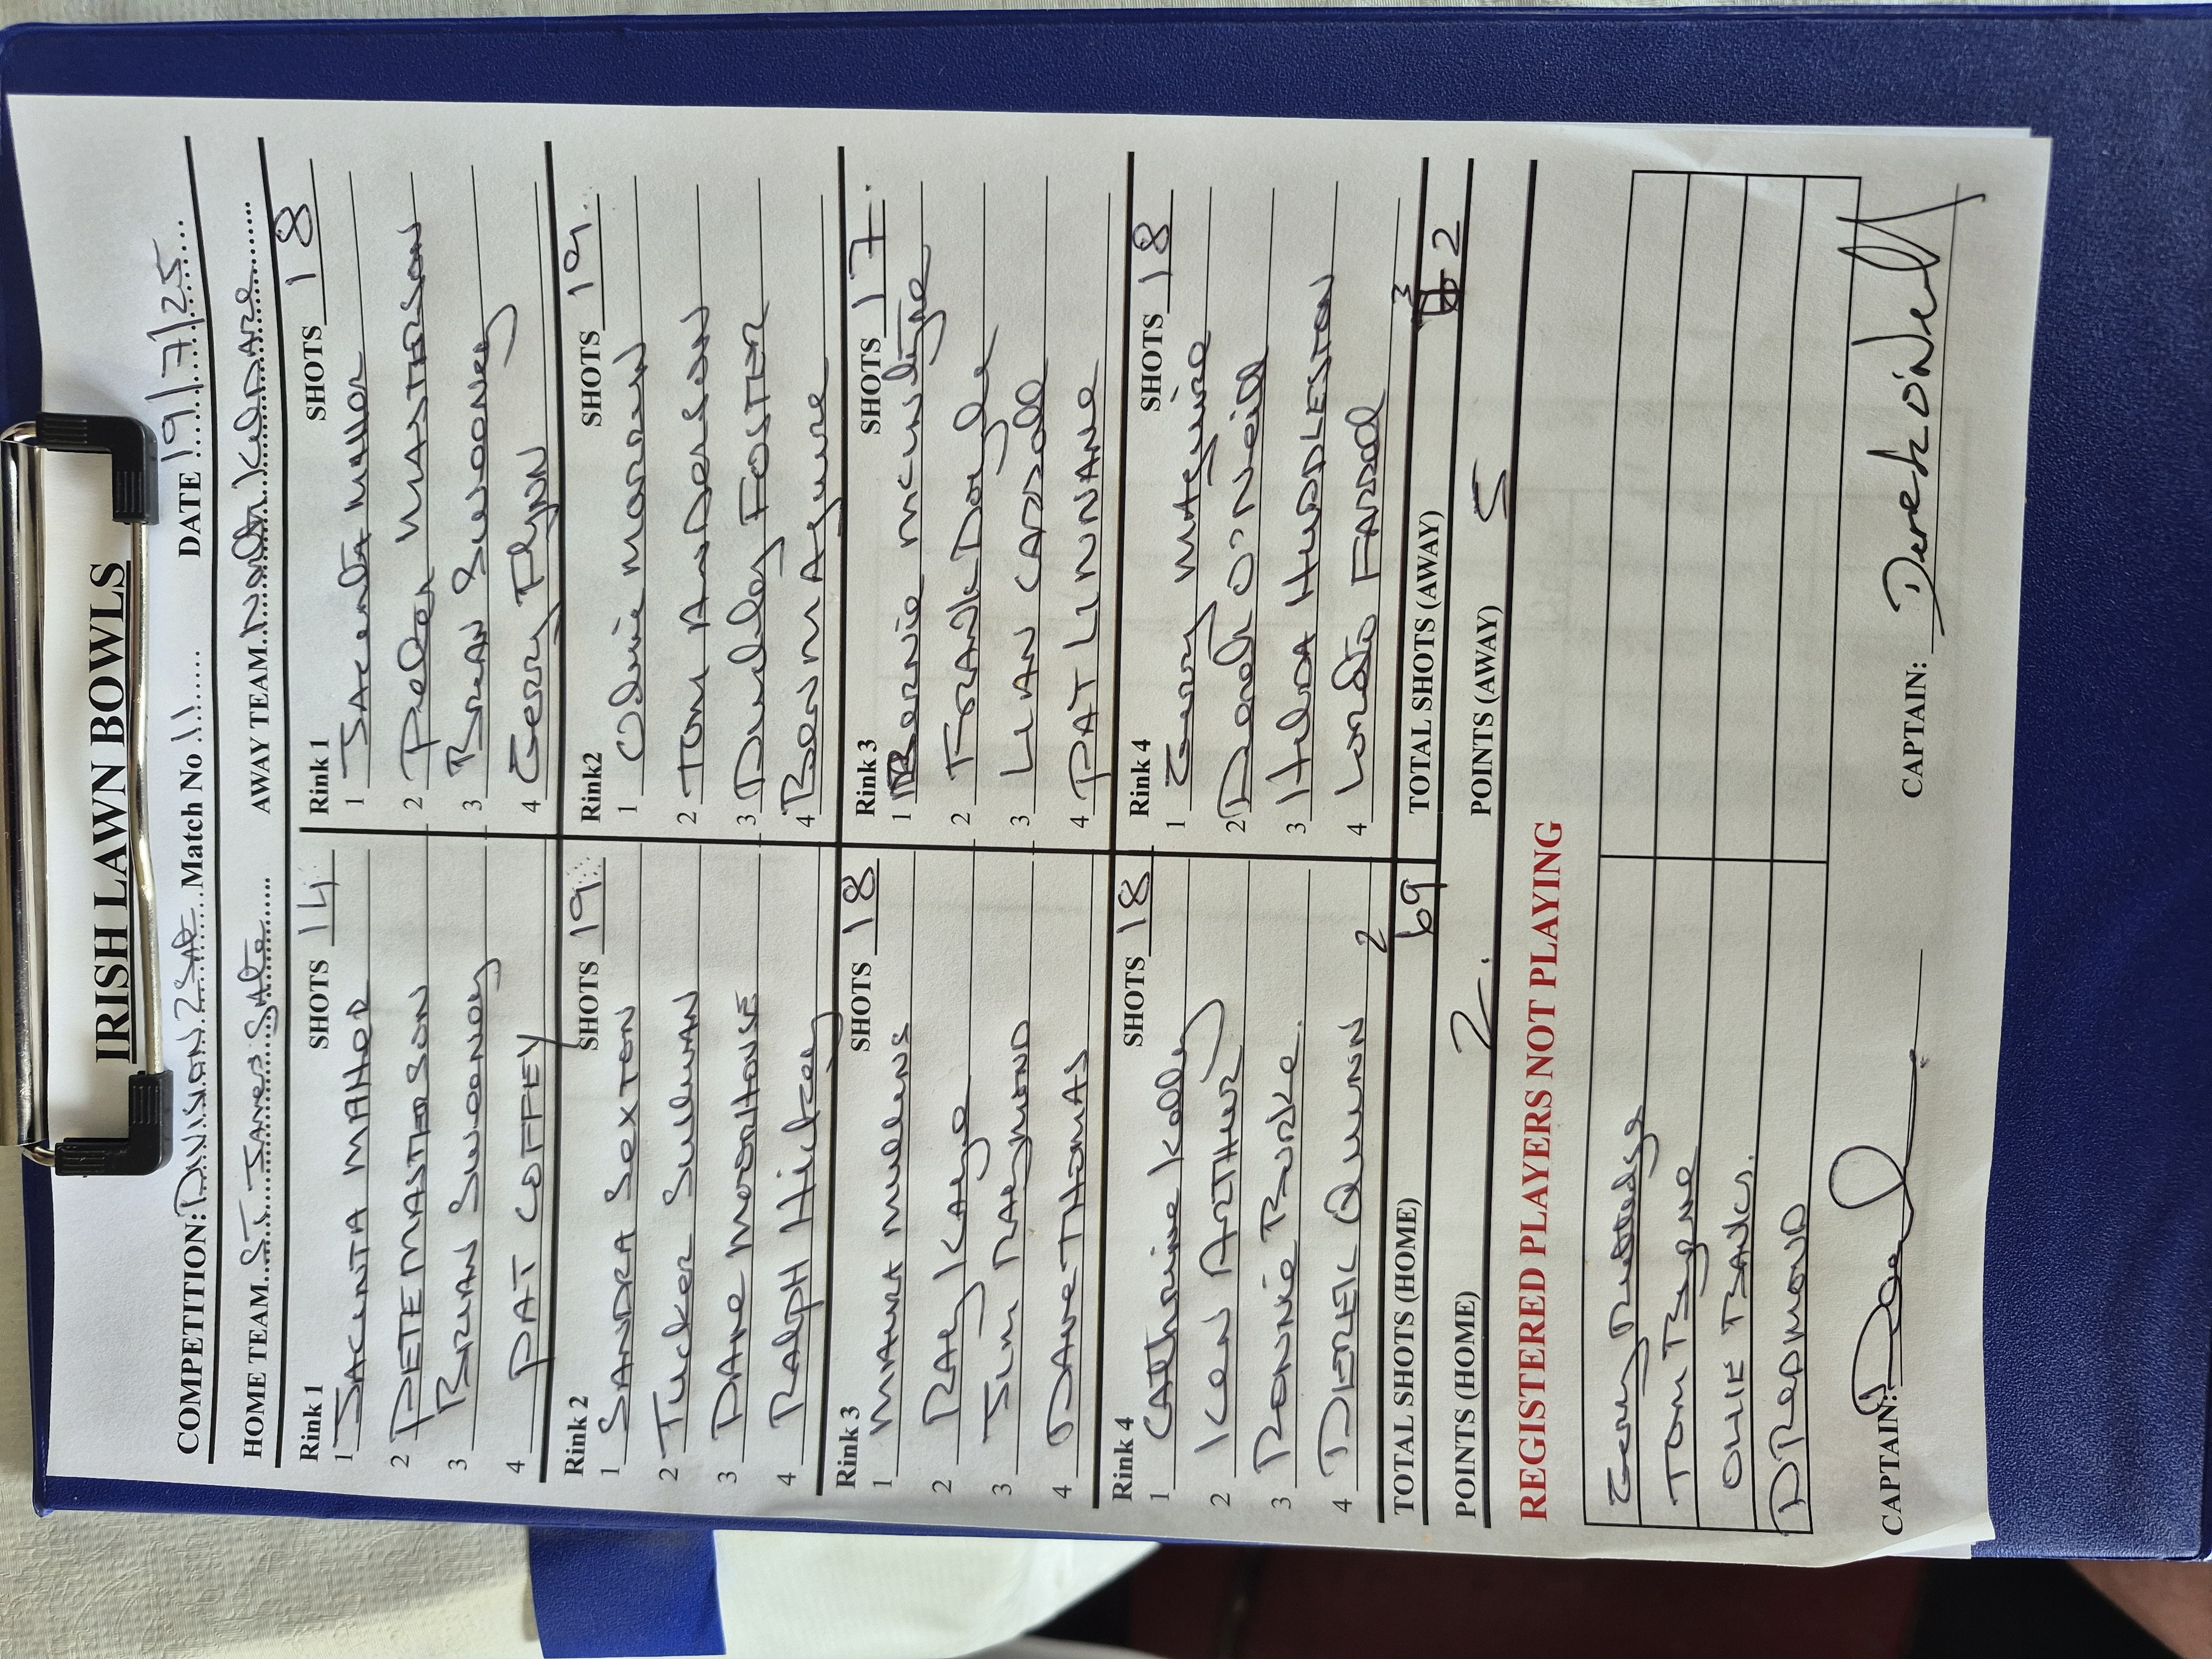 IRISH LAWN BOWLS
COMPETITION: DIVISION 2 SAT Match No 11 DATE 19/7/25
HOME TEAM ST James Gate AWAY TEAM Naas KILDARE
Rink 1 SHOTS 14 Rink 1 SHOTS 18
1 JACINTA MAHOR 1 Jacenta MAHOR
2 PETE MASTERSON 2 Peter MASTERSON
3 BRIAN Sweeney 3 Brian Sweeney
4 PAT COFFEY 4 Gerry Flynn
Rink 2 SHOTS 19 Rink2 SHOTS 19
1 SANDRA SEXTON 1 Olivia Moran
2 Tucker Sullivan 2 Tom Anderson
3 DANE MOOREHOUSE 3 Dudley FOSTER
4 Ralph Hickey 4 Ben Maguire
Rink 3 SHOTS 18 Rink 3 SHOTS 17
1 MAURA Mullens 1 Bernie McIntyre
2 Ray Kaye 2 FRANK Doyle
3 Jim RAYMOND 3 LIAN CARROLL
4 Dave THOMAS 4 PAT LINNANE
Rink 4 SHOTS 18 Rink 4 SHOTS 18
1 Cathrine Kelly 1 Gerry Maguire
2 Ken ARTHUR 2 Derek O'Neill
3 Ronnie BURKE 3 Hilda HUDDLESTON
4 DEREK QUINN 4 Loreto FARRELL
TOTAL SHOTS (HOME) 2 69 TOTAL SHOTS (AWAY) 3 72
POINTS (HOME) 2. POINTS (AWAY) 5
REGISTERED PLAYERS NOT PLAYING
Gerry Ruttledge
TOM Byrne
OLLIE BANCS.
D REDMOND
CAPTAIN: CAPTAIN: Derek O'Neill